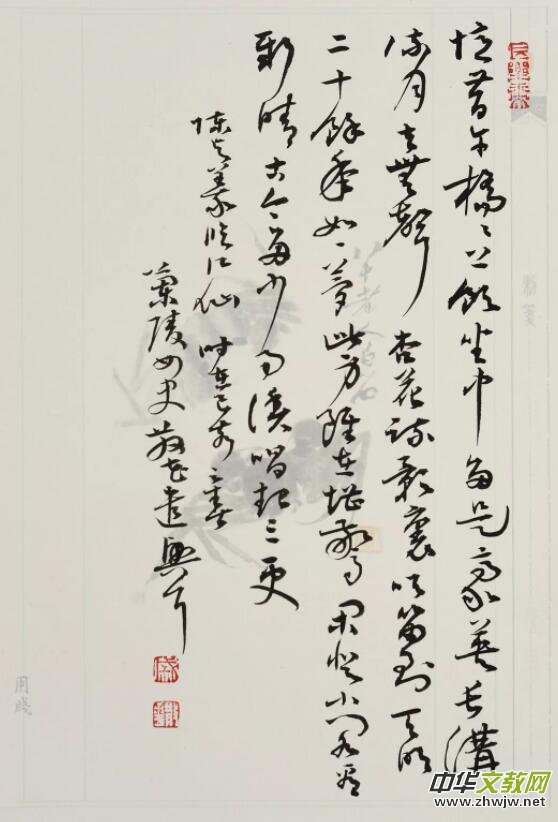 憶昔午橋々上飲坐中多是豪英長溝
流月去無聲杏花疏影裏吹笛到天明
二十餘年如一夢此身雖在堪驚閑登小閣看
新晴古今多少事漁唱起三更
陳與義臨江仙 時在己亥春
蘭陵女史遣興
用牋
中华文教网
www.zhwjw.net